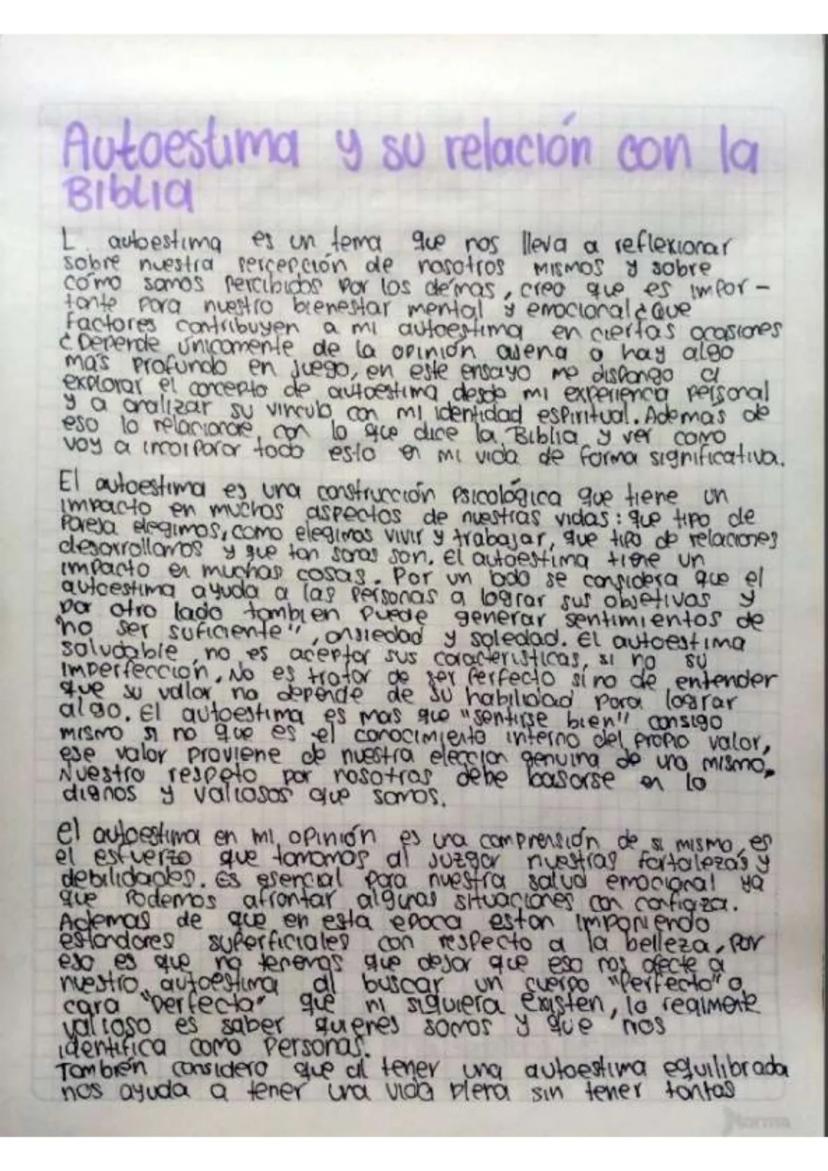 Autoestima y su relación con la
Biblia
L autoestima es un tema que nos lleva a reflexionar
sobre nuestra percepción de nosotros mismos y sobre
cómo somos percibidos por los demas, creo que es impor-
tante para nuestro bienestar mental y emocional ¿Que
factores contribuyen a mi autoestima en ciertas ocasiones
¿Depende únicamente de la opinión ajena o hay algo
mas profundo en juego, en este ensayo me dispongo a
explorar el concepto de autoestima desde mi experiencia personal
y a analizar su vinculo con mi identidad espiritual. Ademas de
eso lo relacionare con lo que dice la Biblia y ver como
voy a incorporar todo esto en mi vida de forma significativa.
El autoestima es una construcción psicológica que tiene un
impacto en muchos aspectos de nuestras vidas: que tipo de
pareja elegimos, como elegimos vivir y trabajar, que tipo de relaciones
desarrollamos y que tan sanas son. El autoestima tiene un
impacto en muchas cosas. Por un lado se considera que el
autoestima ayuda a las personas a lograr sus objetivos y
por otro lado tambien puede generar sentimientos de
"no ser suficiente", ansiedad y soledad. El autoestima
saludable no es aceptar sus caracteristicas, si no su
imperfección. No es tratar de ser perfecto si no de entender
que su valor no depende de su habilidad para lograr
algo. El autoestima es mas que "sentirse bien" consigo
mismo si no que es el conocimiento interno del propio valor,
ese valor proviene de nuestra eleccion genuina de uno mismo.
Nuestro respeto por nosotros debe basarse en lo
dignos y valiosos que somos.
El autoestima en mi opinión es una comprensión de si mismo, es
el esfuerzo que tomamos al juzgar nuestras fortalezas y
debilidades. Es esencial para nuestra salud emocional ya
que podemos afrontar algunas situaciones con confiaza.
Ademas de que en esta epoca estan imponiendo
estandares superficiales con respecto a la belleza, por
eso es que no tenemos que dejar que eso nos afecte a
nuestro autoestima al buscar un cuerpo "perfecto" o
cara "perfecta" que ni siquiera existen, lo realmente
valioso es saber quienes somos y que nos
identifica como personas.
También considero que al tener una autoestima equilibrada
nos ayuda a tener una vida plena sin tener tantas
Norma